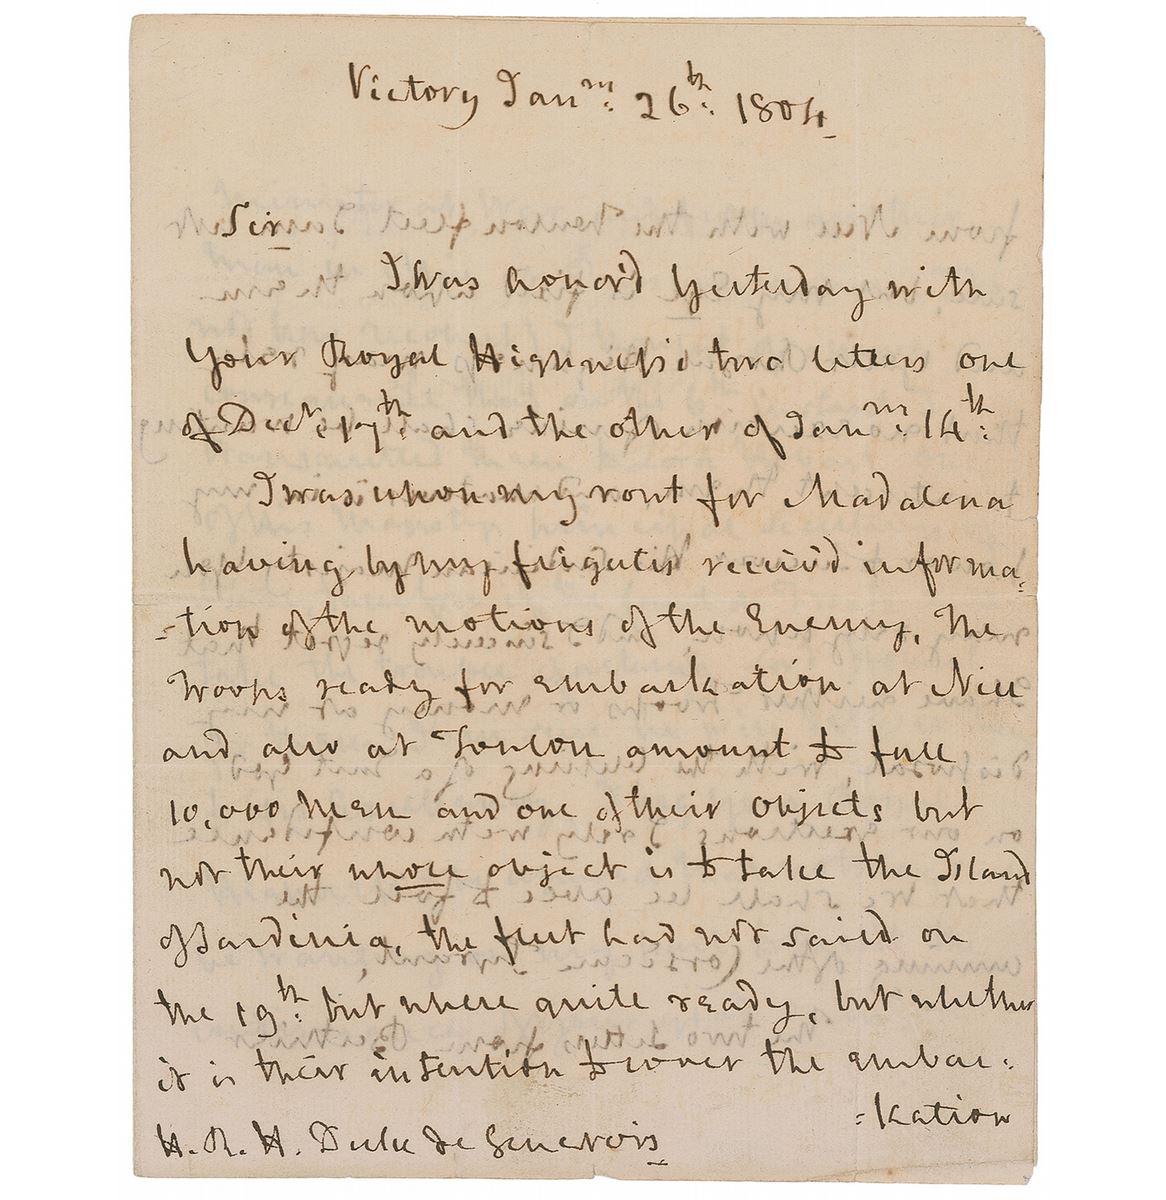 Victory Jan^ry: 26^th: 1804
Sir
I was honor'd Yesterday with
Your Royal Highness's two letters one
of Dec^r: 17^th: and the other of Jan^ry: 14^th:
I was upon my rout for Madalena
having by my frigates receiv'd informa=
=tion of the motions of the Enemy, The
Troops ready for embarkation at Nice
and also at Toulon amount to full
10,000 Men and one of their objects but
not their whole object is to take the Island
of Sardinia, the fleet had not sailed on
the 19^th: but where quite ready, but whether
it is their intention to cover the embar=
=kation
H. R. H. Duke de Genevois